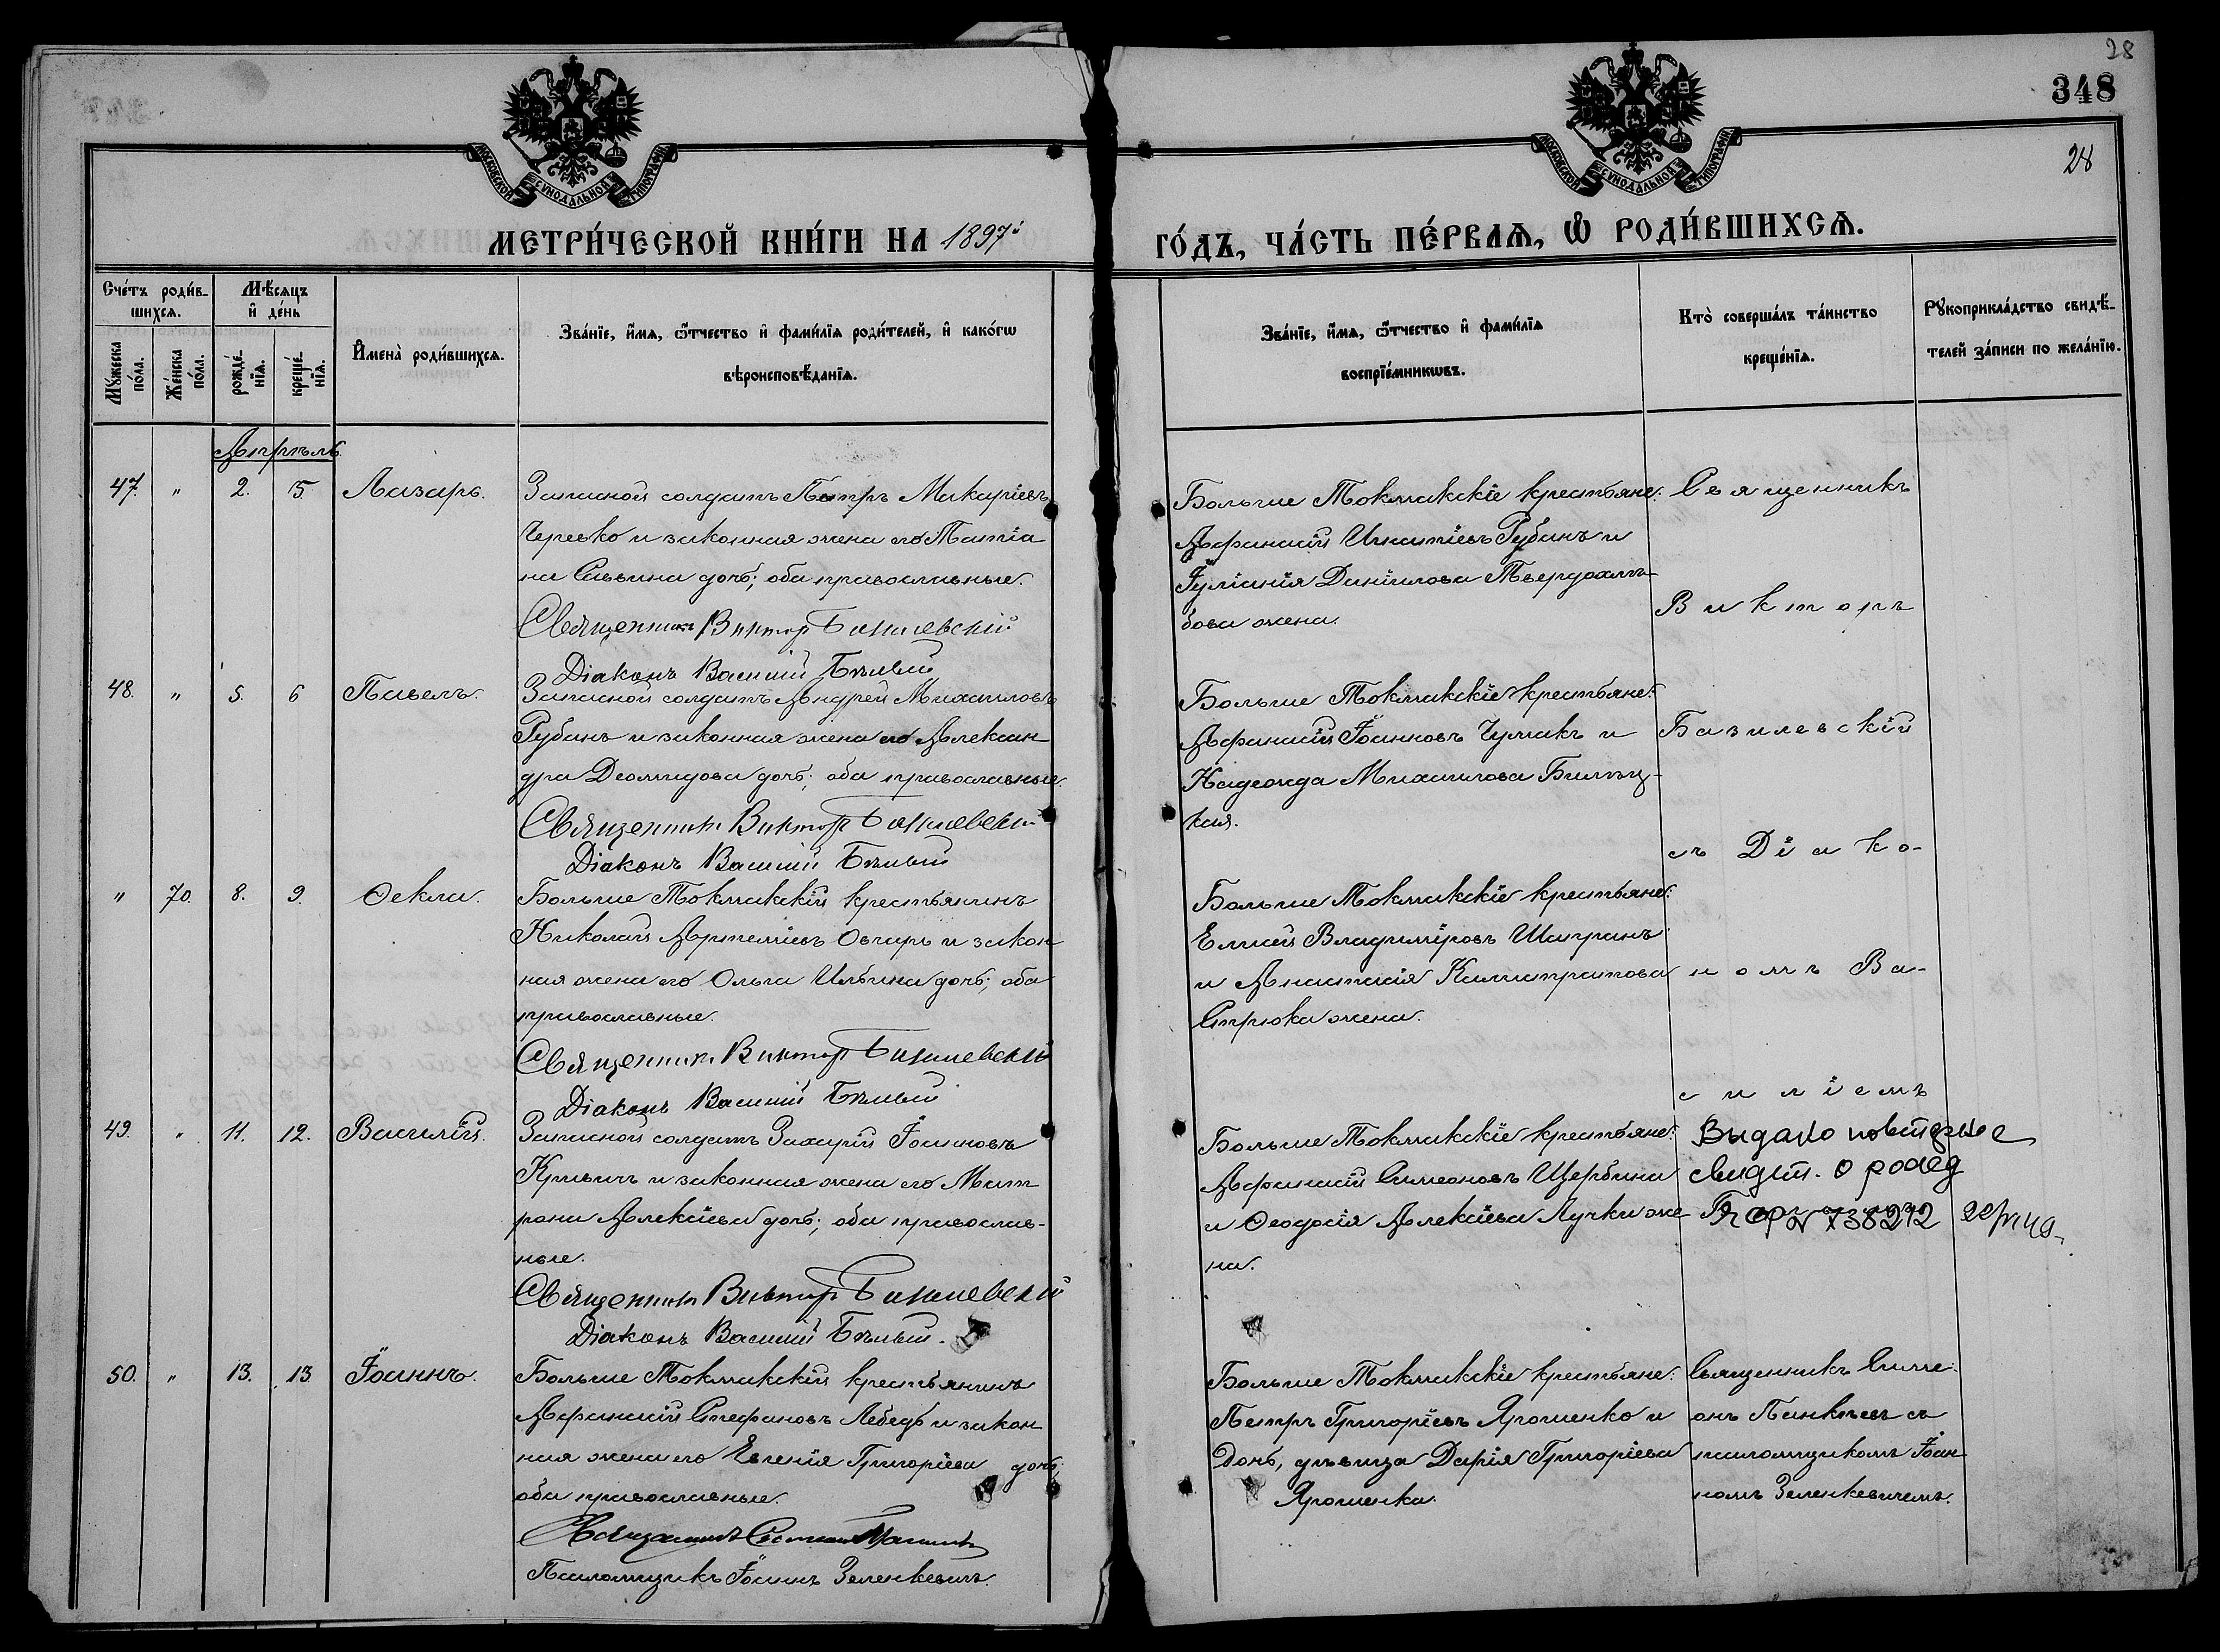 28
348
28
МОСКОВСКОЙ СѴНОДАЛЬНОЙ ТИПОГРАФІИ
МОСКОВСКОЙ СѴНОДАЛЬНОЙ ТИПОГРАФІИ
МЕТРИ́ЧЕСКОЙ КНИ́ГИ НА 1897й
ГО́ДЪ, ЧА́СТЬ ПЕ́РВАѦ, Ѽ РОДИ́ВШИХСѦ.
Сче́тъ роди́в-
шихсѧ.
Мꙋ́жеска по́ла.
Же́нска по́ла.
Мѣ́сѧцъ
и҆ де́нь
рожде́-
нїѧ.
креще́-
нїѧ.
И҆мена̀ роди́вшихсѧ.
Зва́нїе, и҆́мѧ, ѻ҆́тчество и҆ фами́лїѧ роди́телей, и҆ како́гѡ
вѣроисповѣ́данїѧ.
Зва́нїе, и҆́мѧ, ѻ҆́тчество и҆ фами́лїѧ
воспрїе́мникѡвъ.
Кто̀ соверша́лъ та́инство
креще́нїѧ.
Рꙋкоприкла́дство свидѣ́-
телей за́писи по жела́нїю.
Апрѣль.
47. " 2. 5. Лазарь.
Запасной солдатъ Петръ Макаріевъ
Черевко и законная жена его Татіа
на Саввина дочь; оба православные.
Священникъ Виктор Базилевский
Діаконъ Василий Бѣлый
Больше Токмакскіе крестьяне:
Афанасій Игнатіевъ Рубанъ и
Іуліанія Даніилова Твердохлѣ-
бова жена.
Священникъ
Викторъ
48. " 5. 6 Павелъ.
Запасной солдатъ Андрей Михаиловъ
Рубанъ и законная жена его Алексан
дра Деомидова дочь; оба православные.
Священникъ Виктор Базилевский
Діаконъ Василий Бѣлый
Больше Токмакскіе крестьяне:
Афанасій Іоанновъ Чумакъ и
Надежда Михаилова Билѣц-
кая.
Базилевскій
съ Діако-
" 70. 8. 9. Ѳекла.
Больше Токмакскій крестьянинъ
Николай Артеміевъ Овчаръ и закон
ная жена его Ольга Ильина дочь; оба
православные.
Священникъ Виктор Базилевский
Діаконъ Василий Бѣлый
Больше Токмакскіе крестьяне:
Елисей Владиміровъ Шапранъ
и Анастасія Каллистратова
Стрюка жена.
номъ Ва-
силіемъ
49. " 11. 12. Василій.
Запасной солдатъ Захарій Іоанновъ
Кривичъ и законная жена его Мат
рона Алексіева дочь; оба православ-
ные.
Священникъ Виктор Базилевский
Діаконъ Василий Бѣлый.
Больше Токмакскіе крестьяне:
Афанасій Симеоновъ Щербина
и Ѳеодосія Алексіева Лучки же
на.
Выдано повторное
свидет. о рожд
738272
50. " 13. 13. Іоаннъ.
Больше Токмакскій крестьянинъ
Афанасій Стефановъ Лебедь и закон
ная жена его Евгенія Григоріева дочь;
оба православные.
Псаломщикъ Іоаннъ Зеленкевичъ.
Больше Токмакскіе крестьяне:
Петръ Григоріевъ Ярошенко и
дочь, дѣвица Дарія Григоріева
Ярошенка.
Священникъ Симе-
онъ Панкѣевъ съ
псаломщикомъ Іоан
номъ Зеленкевичемъ.